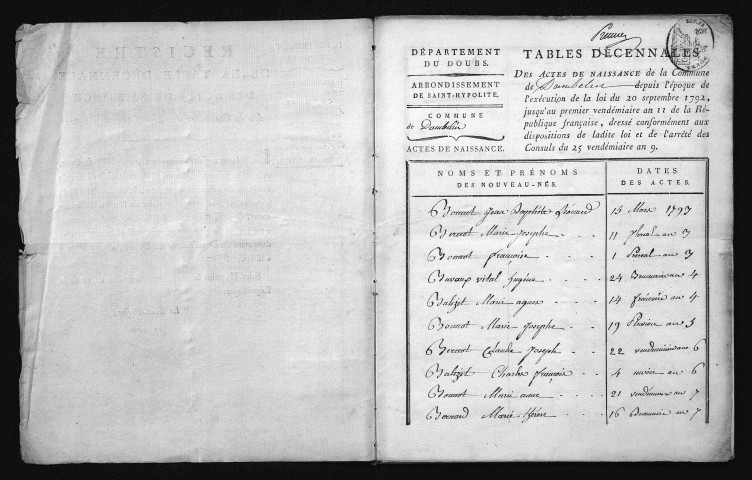 REGISTRE
DE LA TABLE DÉCENNALE
DÉPARTEMENT
DU DOUBS.
ARRONDISSEMENT
DE SAINT-HYPOLITE.
COMMUNE
de Dambelin
ACTES DE NAISSANCE.
TABLES DÉCENNALES
DES ACTES DE NAISSANCE de la Commune
de Dambelin depuis l'époque de
l'exécution de la loi du 20 septembre 1792,
jusqu'au premier vendémiaire an 11 de la Ré-
publique française, dressé conformément aux
dispositions de ladite loi et de l'arrêté des
Consuls du 25 vendémiaire an 9.
NOMS ET PRÉNOMS
DES NOUVEAU-NÉS.
DATES
DES ACTES.
Bonnot Jean Baptiste 15 Mars 1793
Berçot Marie Josephe 11 an 3
Bonnot françoise 1 an 3
Bavoux vital Eugène 24 Brumaire an 4
Balizet Marie agnes 14 frimaire an 4
Bonnot Marie Josephe 19 an 5
Berçot Claude Joseph 22 vendémiaire an 6
Balizet Charles françois 4 nivôse an 6
Bonnot Marie anne 21 vendémiaire an 7
Bernard Marie 16 Brumaire an 7